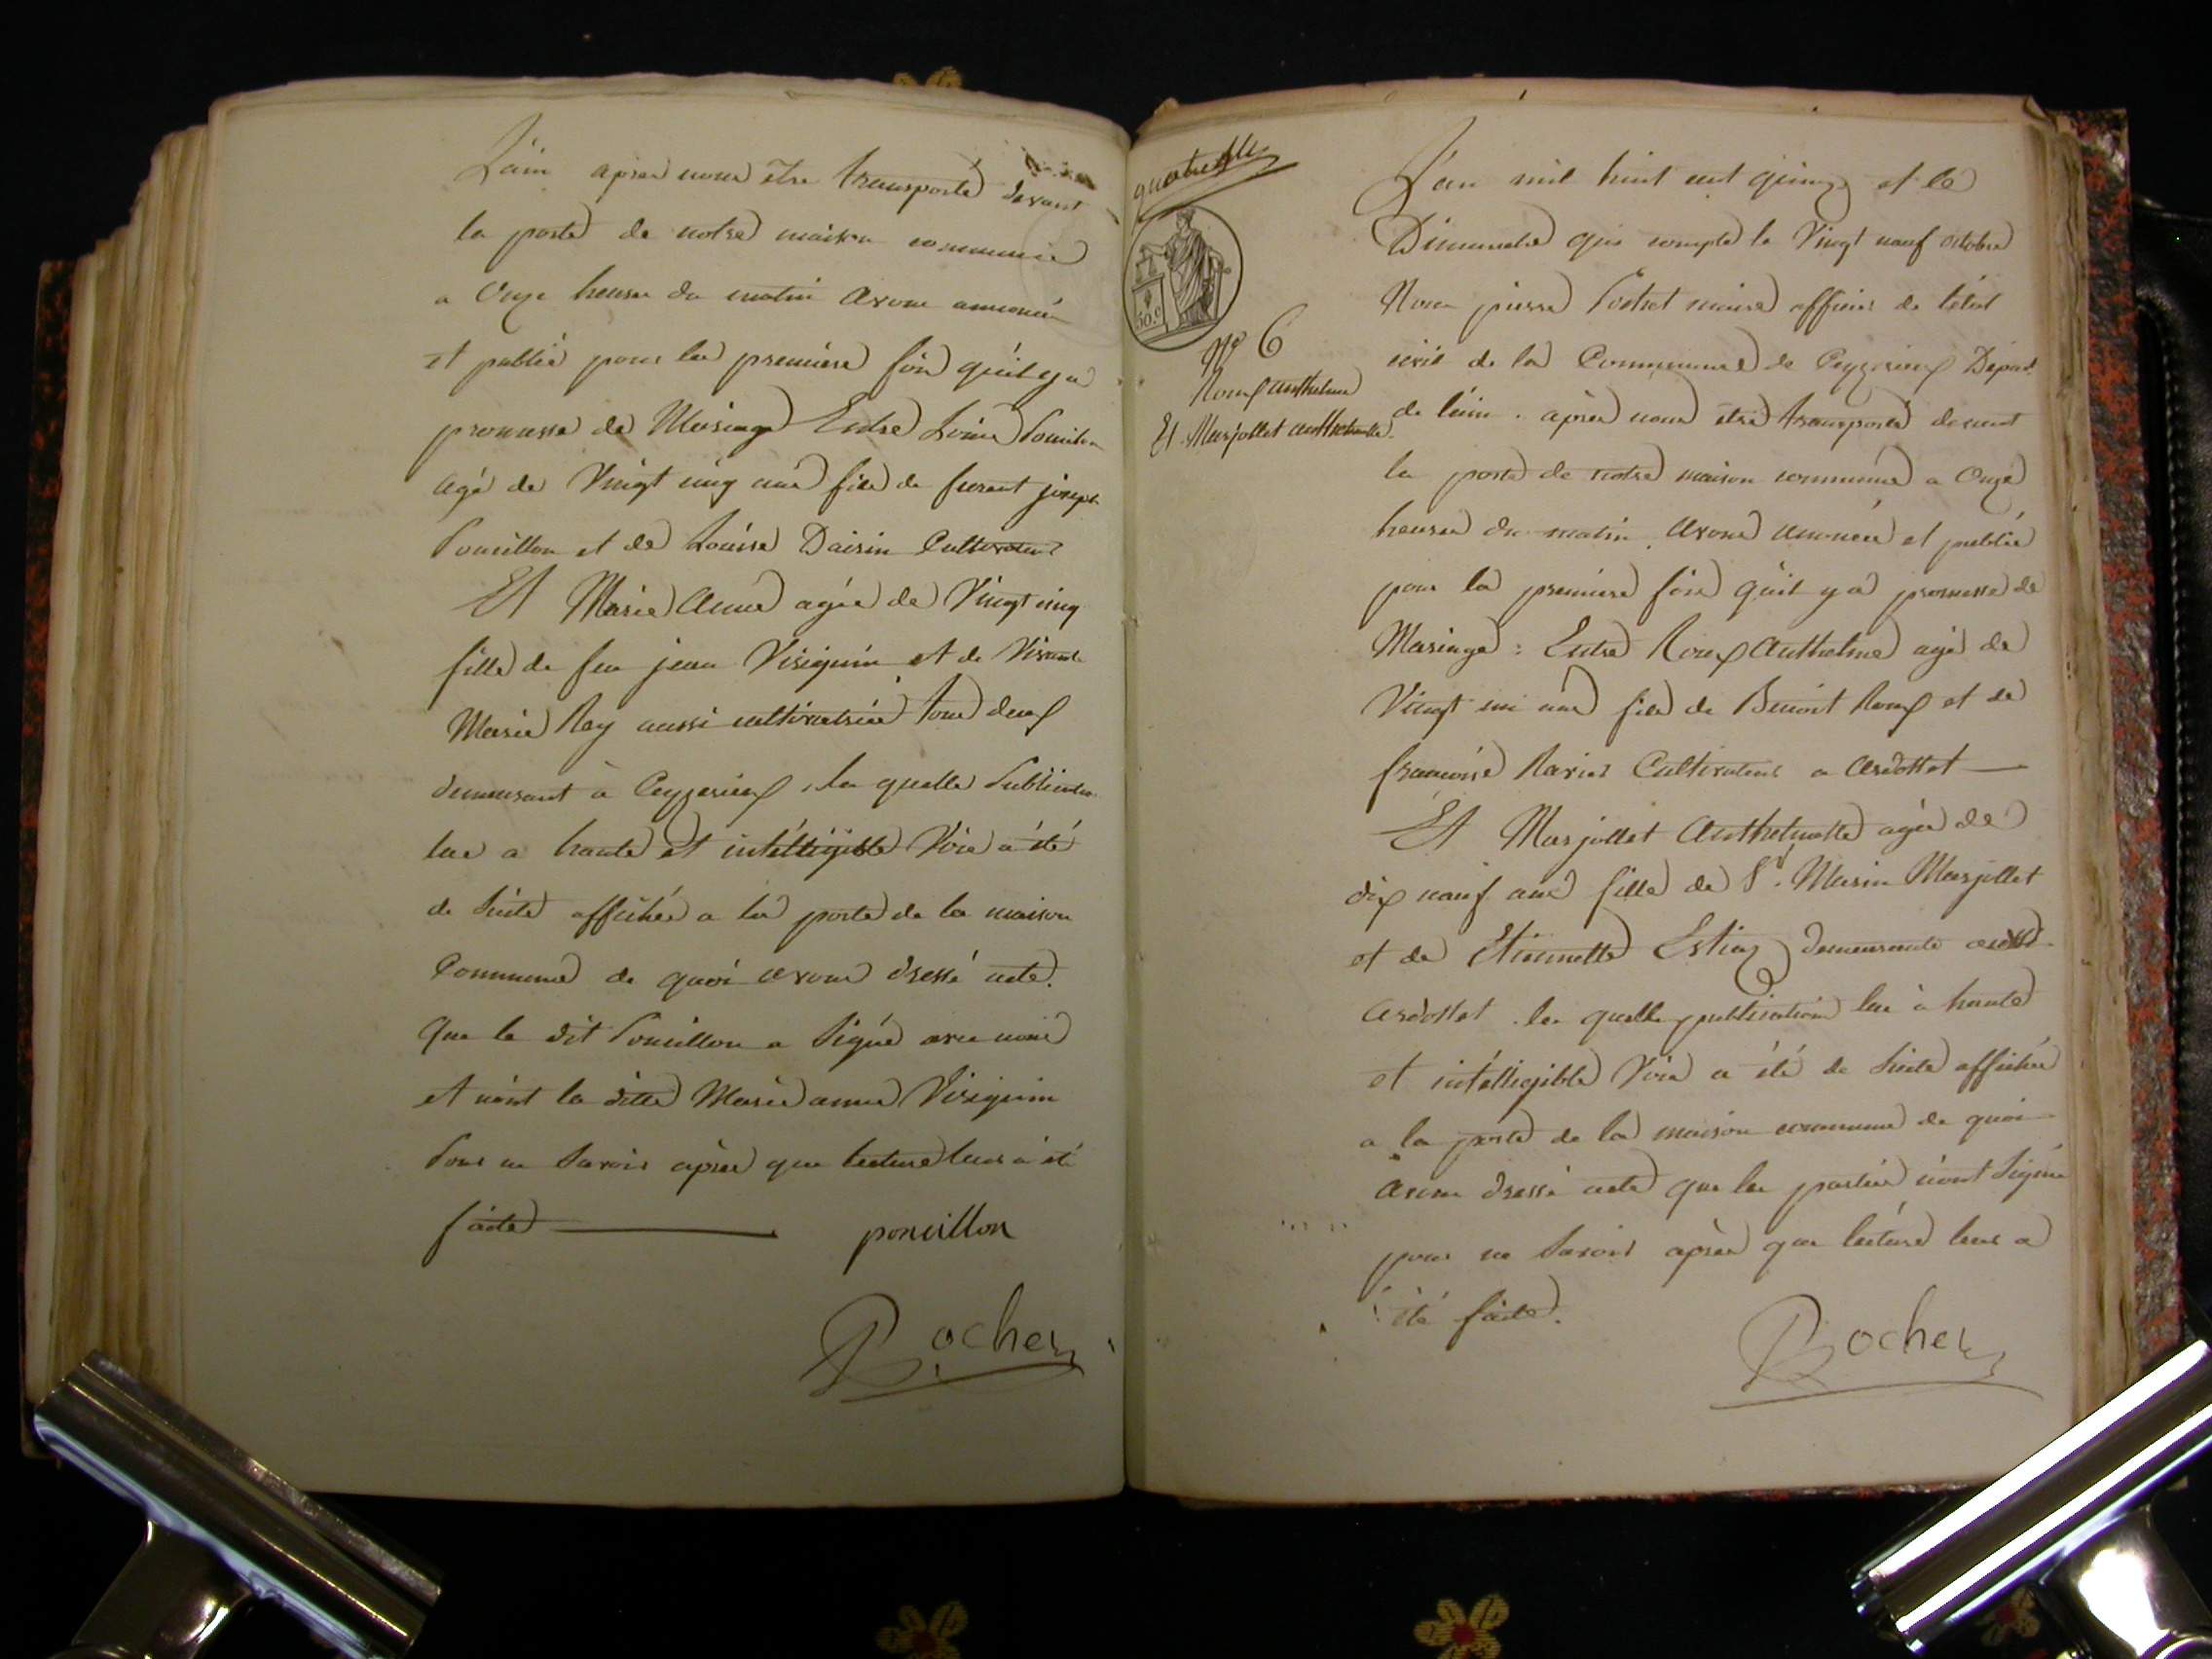 L'ain après nous être transporté devant
la porte de notre maison commune
a Onze heures du matin avons annoncé
et publié pour la première fois qu'il y a
promesse de Mariage Entre Louis Poncillon
agé de Vingt cinq ans fils de furent joseph
Poncillon et de Louise Dairin Cultivateur
Et Marie Anne agée de Vingt cinq
fille de feu jean Visiquin et de Vivante
Marie Rey aussi cultivatrice tous deux
demeurant à Ceyzerieux, la quelle Publication
lue a haute et intélligible Voix a été
de Suite affichée a la porte de la maison
Commune de quoi avons dressé acte.
Que le dit Poncillon a Signé avec nous
et nont la ditte Marie anne Visiquin
Pour ne Savoir après que lecture leur a été
faite poncillon
Rocher
L'an mil huit cent quinze et le
Dimanche qui compte le Vingt neuf octobre
Nous pierre maire officier de l'état
civil de la Commune de Ceyzerieux Depart.
de l'ain. après nous être transporté devant
la porte de notre maison commune a Onze
heures du matin. avons anoncé et publié
pour la première fois qu'il y a promesse de
Mariage : Entre Roux Anthelme agé de
Vingt un ans fils de Benoit Roux et de
françoise Ravier Cultivateur a Ardosset
Et Marjollet Anthelmette agée de
dix neuf ans fille de Sr. Marin Marjollet
et de Etiennette Estier demeurante
Ardosset. la quelle publication lue à haute
et intélligible Voix a été de Suite affichée
a la porte de la maison commune de quoi
avons dressé acte que les parties n'ont Signée
pour ne Savoir après que lecture leur a
été faite.
Rocher
50.C
No 6
Roux anthelme
Et Marjollet anthelmette.